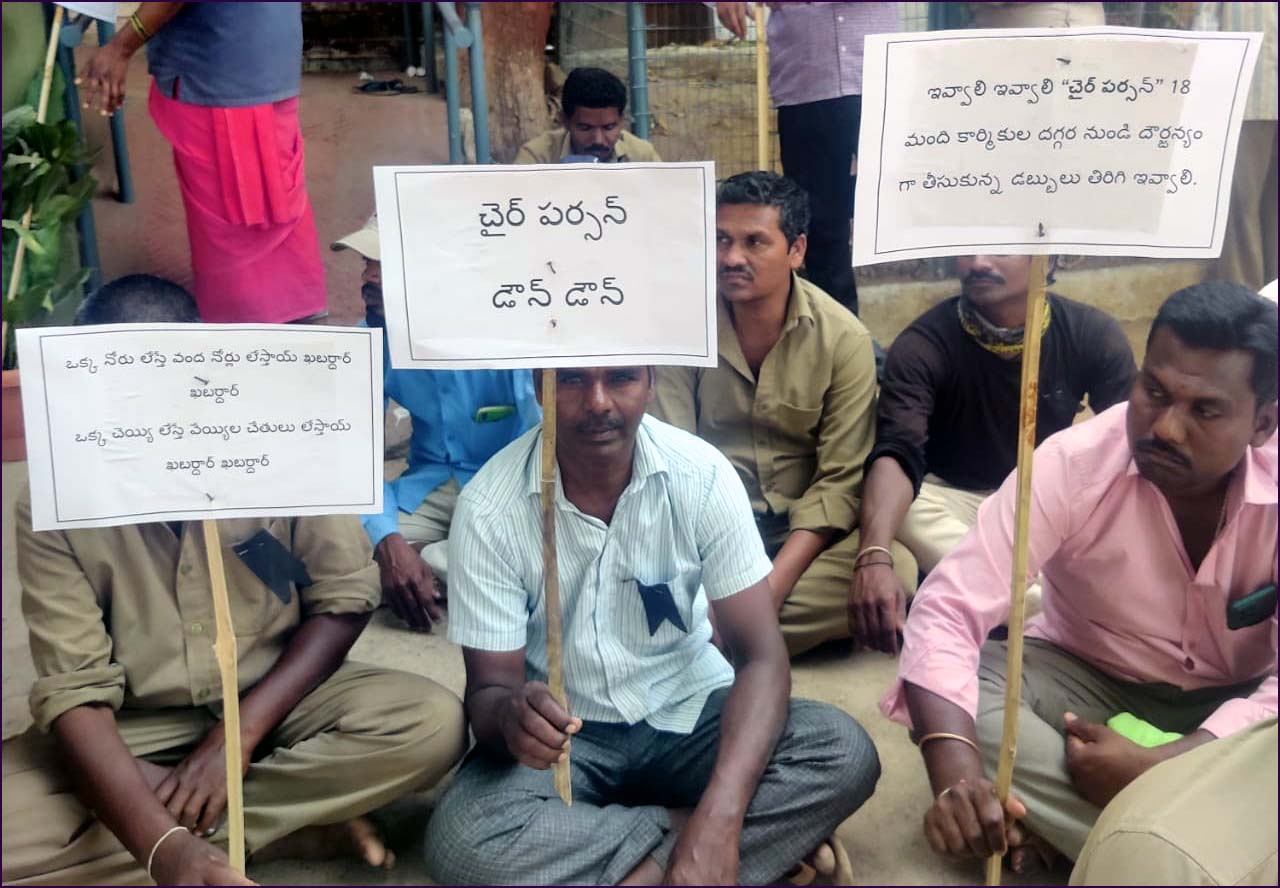 ఒక్క నోరు లేస్తే వంద నోర్లు లేస్తాయ్ ఖబర్దార్
ఖబర్దార్
ఒక్క చెయ్యి లేస్తే వెయ్యిల చేతులు లేస్తాయ్
ఖబర్దార్ ఖబర్దార్
చైర్ పర్సన్
డౌన్ డౌన్
ఇవ్వాలి ఇవ్వాలి “చైర్ పర్సన్” 18
మంది కార్మికుల దగ్గర నుండి దౌర్జన్యం
గా తీసుకున్న డబ్బులు తిరిగి ఇవ్వాలి.